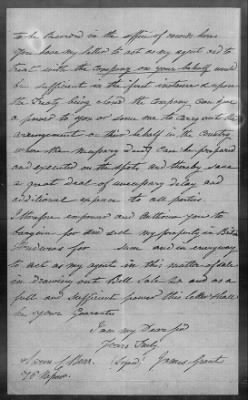 to be Recorded in the office of records here
You have my letter to act as my agent and to
treat with the company on your behalf would
be sufficient in the first instance & upon
the treaty being closed the Company can give
a power to you or some one to carry out the
arrangement on their behalf in the Country
where the necessary Deeds can be prepared
and executed on the spot, and thereby save
a great deal of unnecessary delay and
additional expense to all parties.
I therefore empower and Authorise you to
bargain for and sell my property in
for sum and in everyway
to act as my agent in this matter of sale
in drawing out Bill Sale &c and as a
full and sufficient power this letter shall
be your Guarantee
I am my Dear sir
Yours truly
(Signed) James Grant